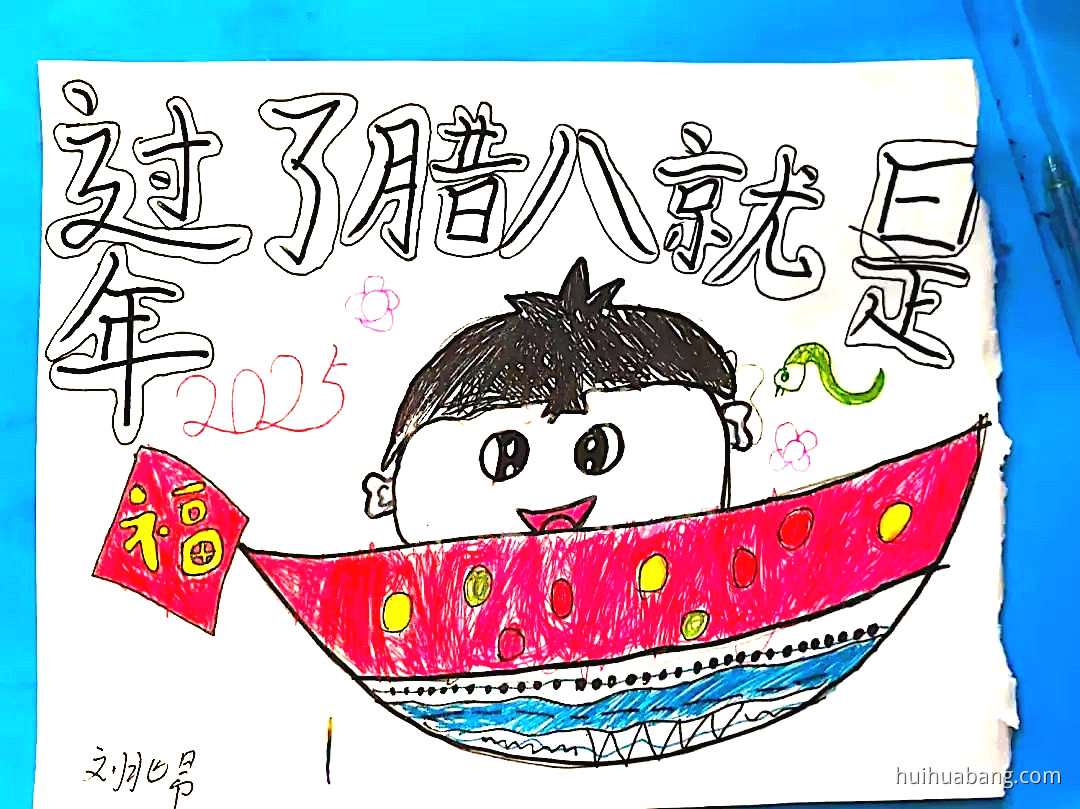 过了腊八就是
年
2025
福
huihuabang.com